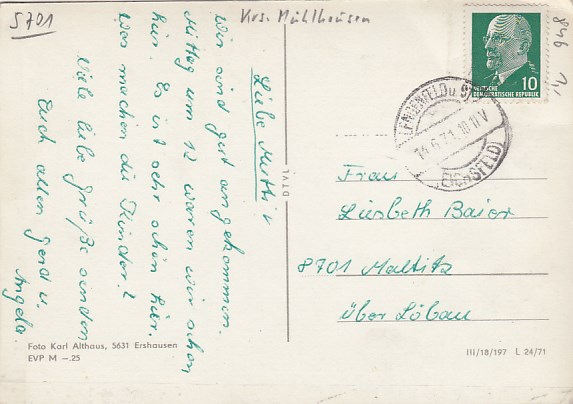 5701
Krs. Mühlhausen
846 1,-
10
DEUTSCHE
DEMOKRATISCHE REPUBLIK
LENGENFELD u. St.
14.6.71.10 IIV
(EICHSFELD)
Liebe Mutti!
Wir sind gut angekommen.
Mittag um 12 waren wir schon
hier. Es ist sehr schön hier.
Was machen die Kinder?
Viele liebe Grüße senden
Euch allen Gerd u.
Angela
Frau
Liesbeth Baier
8701 Maltitz
über Löbau
Foto Karl Althaus, 5631 Ershausen
EVP M –.25
III/18/197 L 24/71